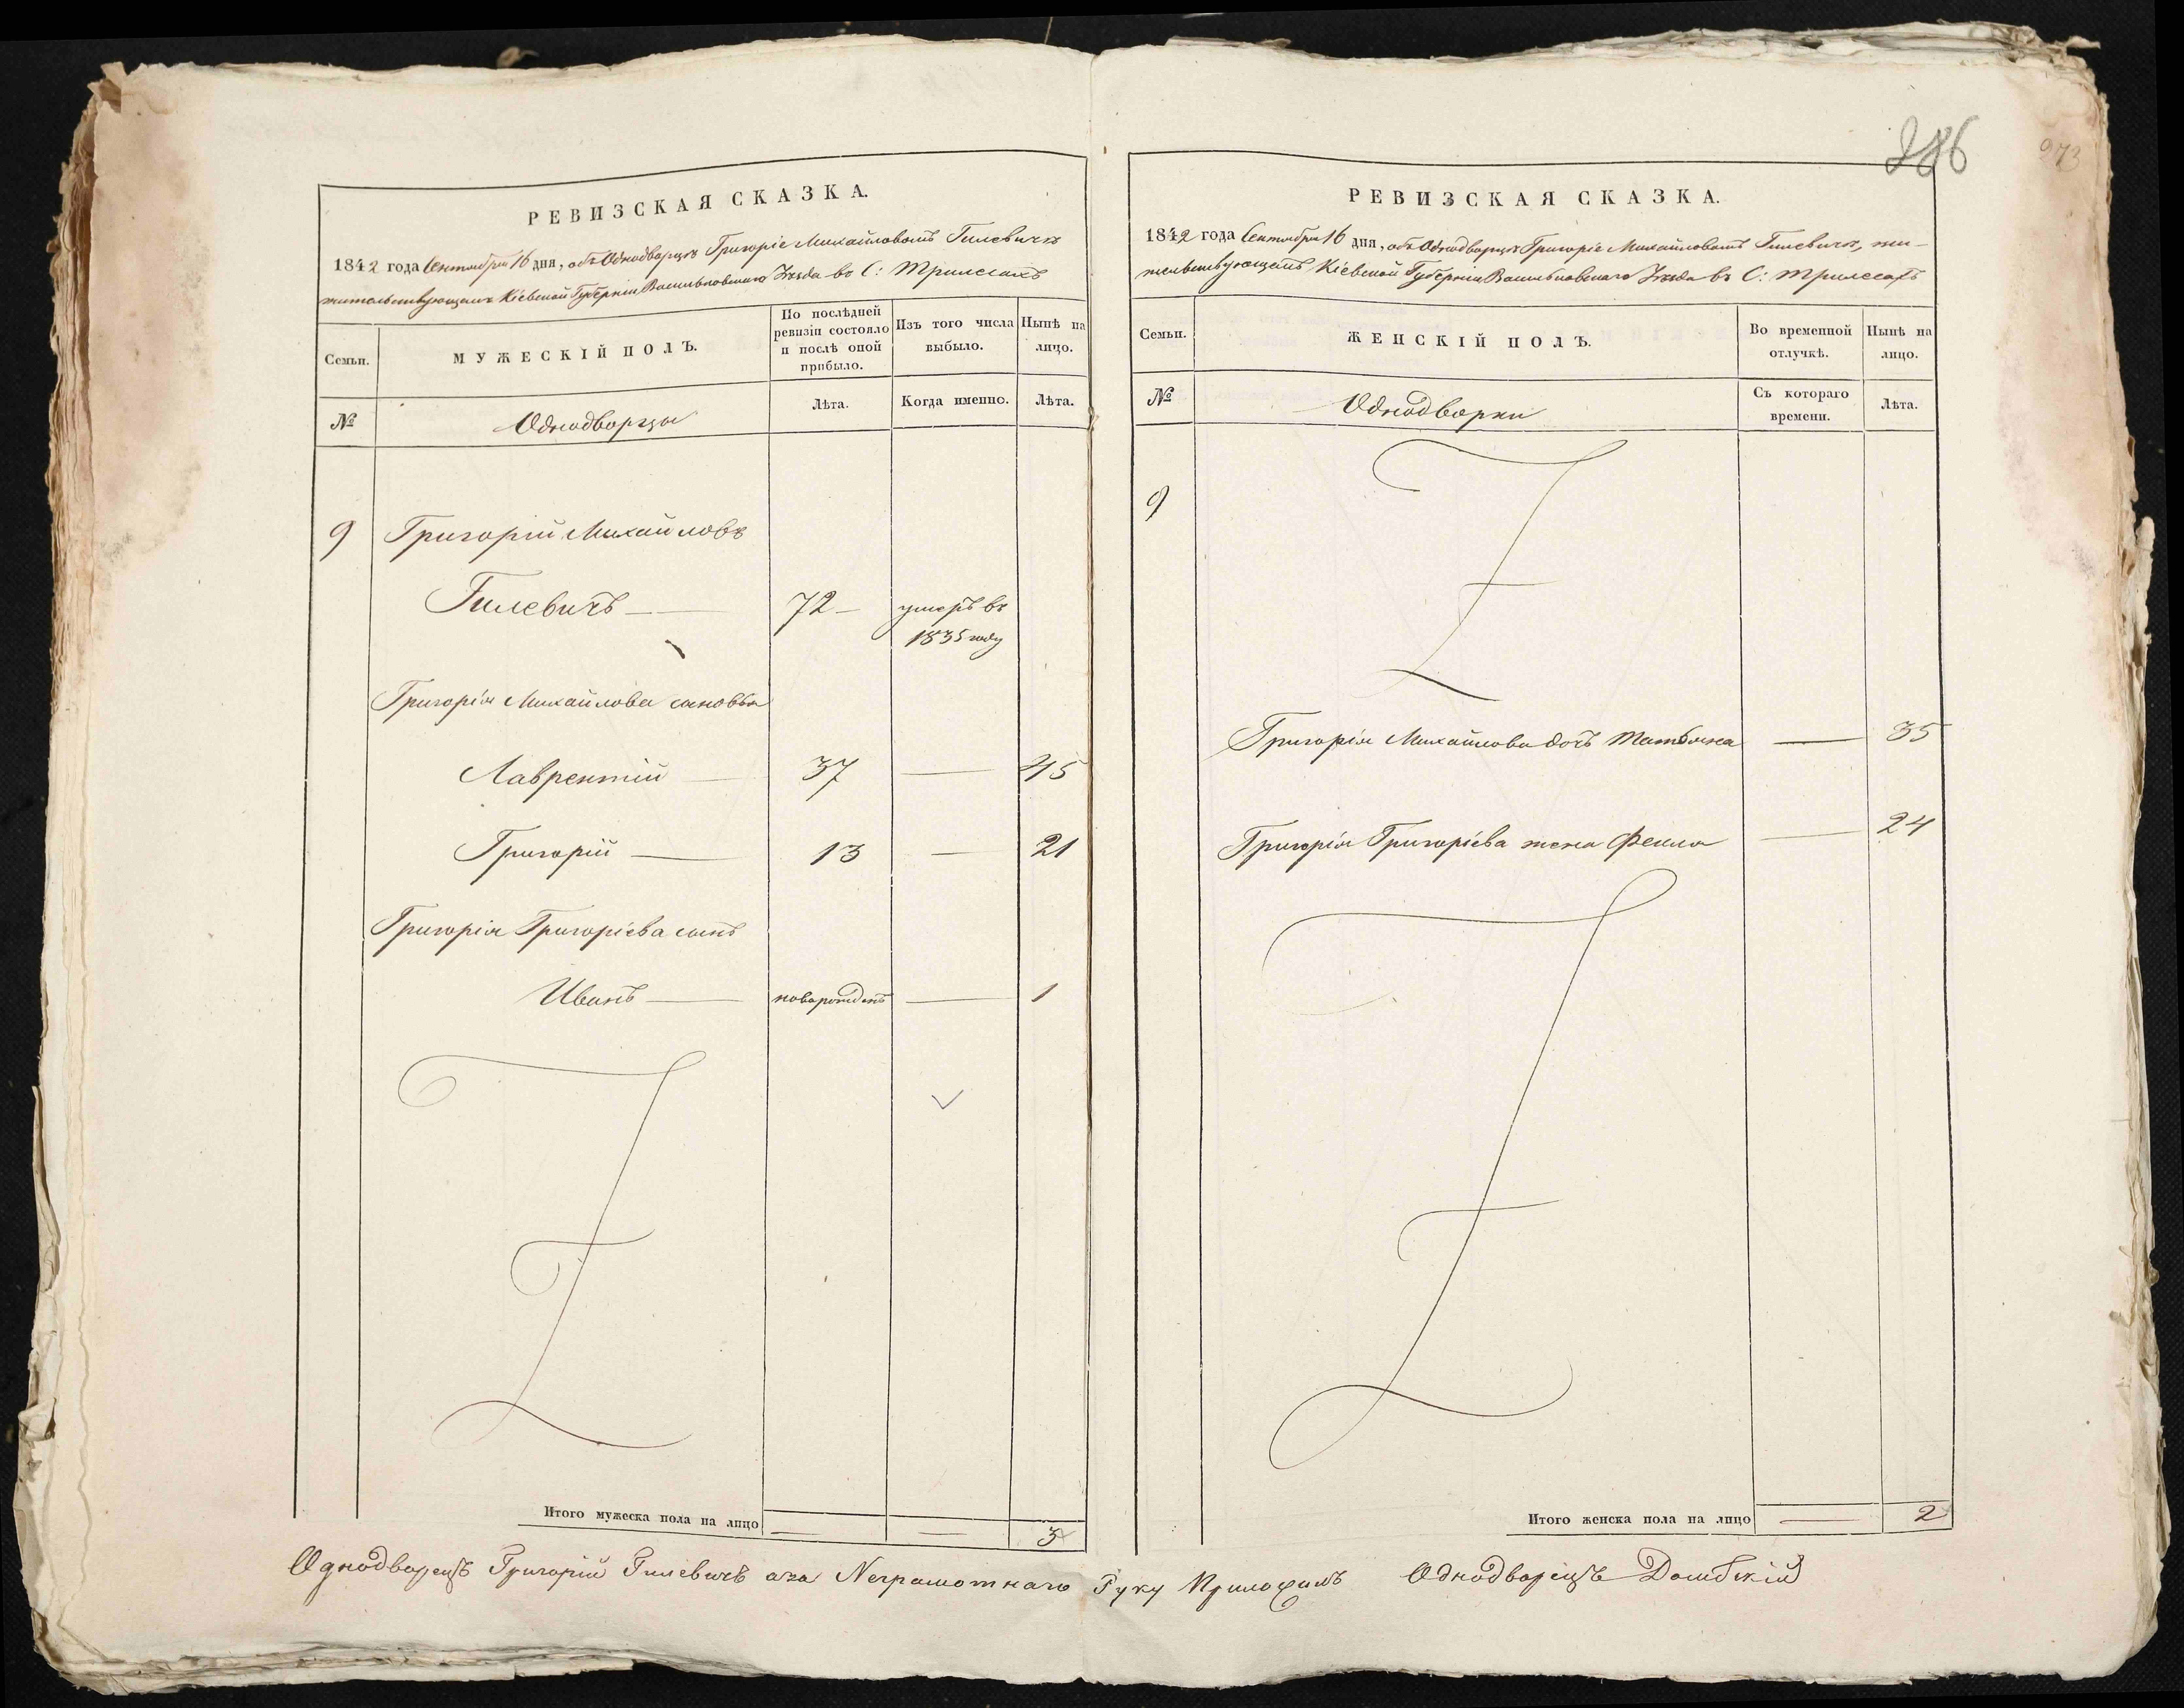 286
973
РЕВИЗСКАЯ СКАЗКА.
1842 года Сентября 16 дня, объ Однодворцѣ Григоріе Михайловомъ Гилевичѣ
жительствующемъ Кіевской Губерніи Васильковскаго Уѣзда въ С: Трилесахъ
Семьи.
МУЖЕСКІЙ ПОЛЪ.
По послѣдней ревизіи состояло и послѣ оной прибыло.
Изъ того числа выбыло.
Нынѣ на лицо.
№
Однодворцы
Лѣта.
Когда именно.
Лѣта.
9 Григорій Михайловъ
Гилевичъ — 72 — умеръ въ
1835 году
Григорія Михайлова сыновья
Лаврентій — 37 — 45
Григорій — 13 — 21
Григорія Григоріева сынъ
Иванъ — новорожденъ — 1
Итого мужеска пола на лицо — — 3
РЕВИЗСКАЯ СКАЗКА.
1842 года Сентября 16 дня, объ Однодворцѣ Григоріе Михайловомъ Гилевичѣ, жи-
тельствующемъ Кіевской Губерніи Васильковскаго Уѣзда въ С: Трилесахъ
Семьи.
ЖЕНСКІЙ ПОЛЪ.
Во временной отлучкѣ.
Нынѣ на лицо.
№
Однодворки
Съ котораго времени.
Лѣта.
9
Григорія Михайлова дочь Татьяна — 35
Григорія Григоріева жена Фекла — 24
Итого женска пола на лицо — 2
Однодворецъ Григорій Гилевичъ аза Неграмотнаго Руку Приложилъ Однодворецъ Домбскій